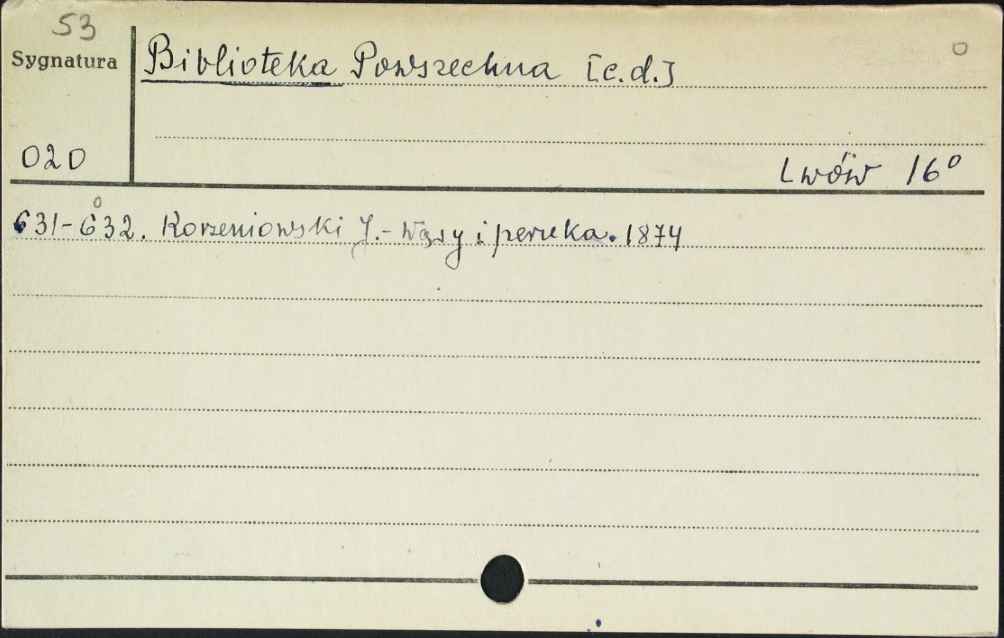 53
Sygnatura Biblioteka Powszechna [c.d.] o
020 Lwów 16°
o
631-632. Korzeniowski J.- Wąsy i peruka. 1874